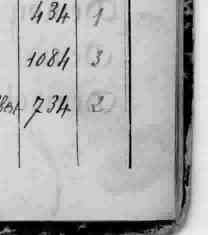 434 1
1084 3
734 2